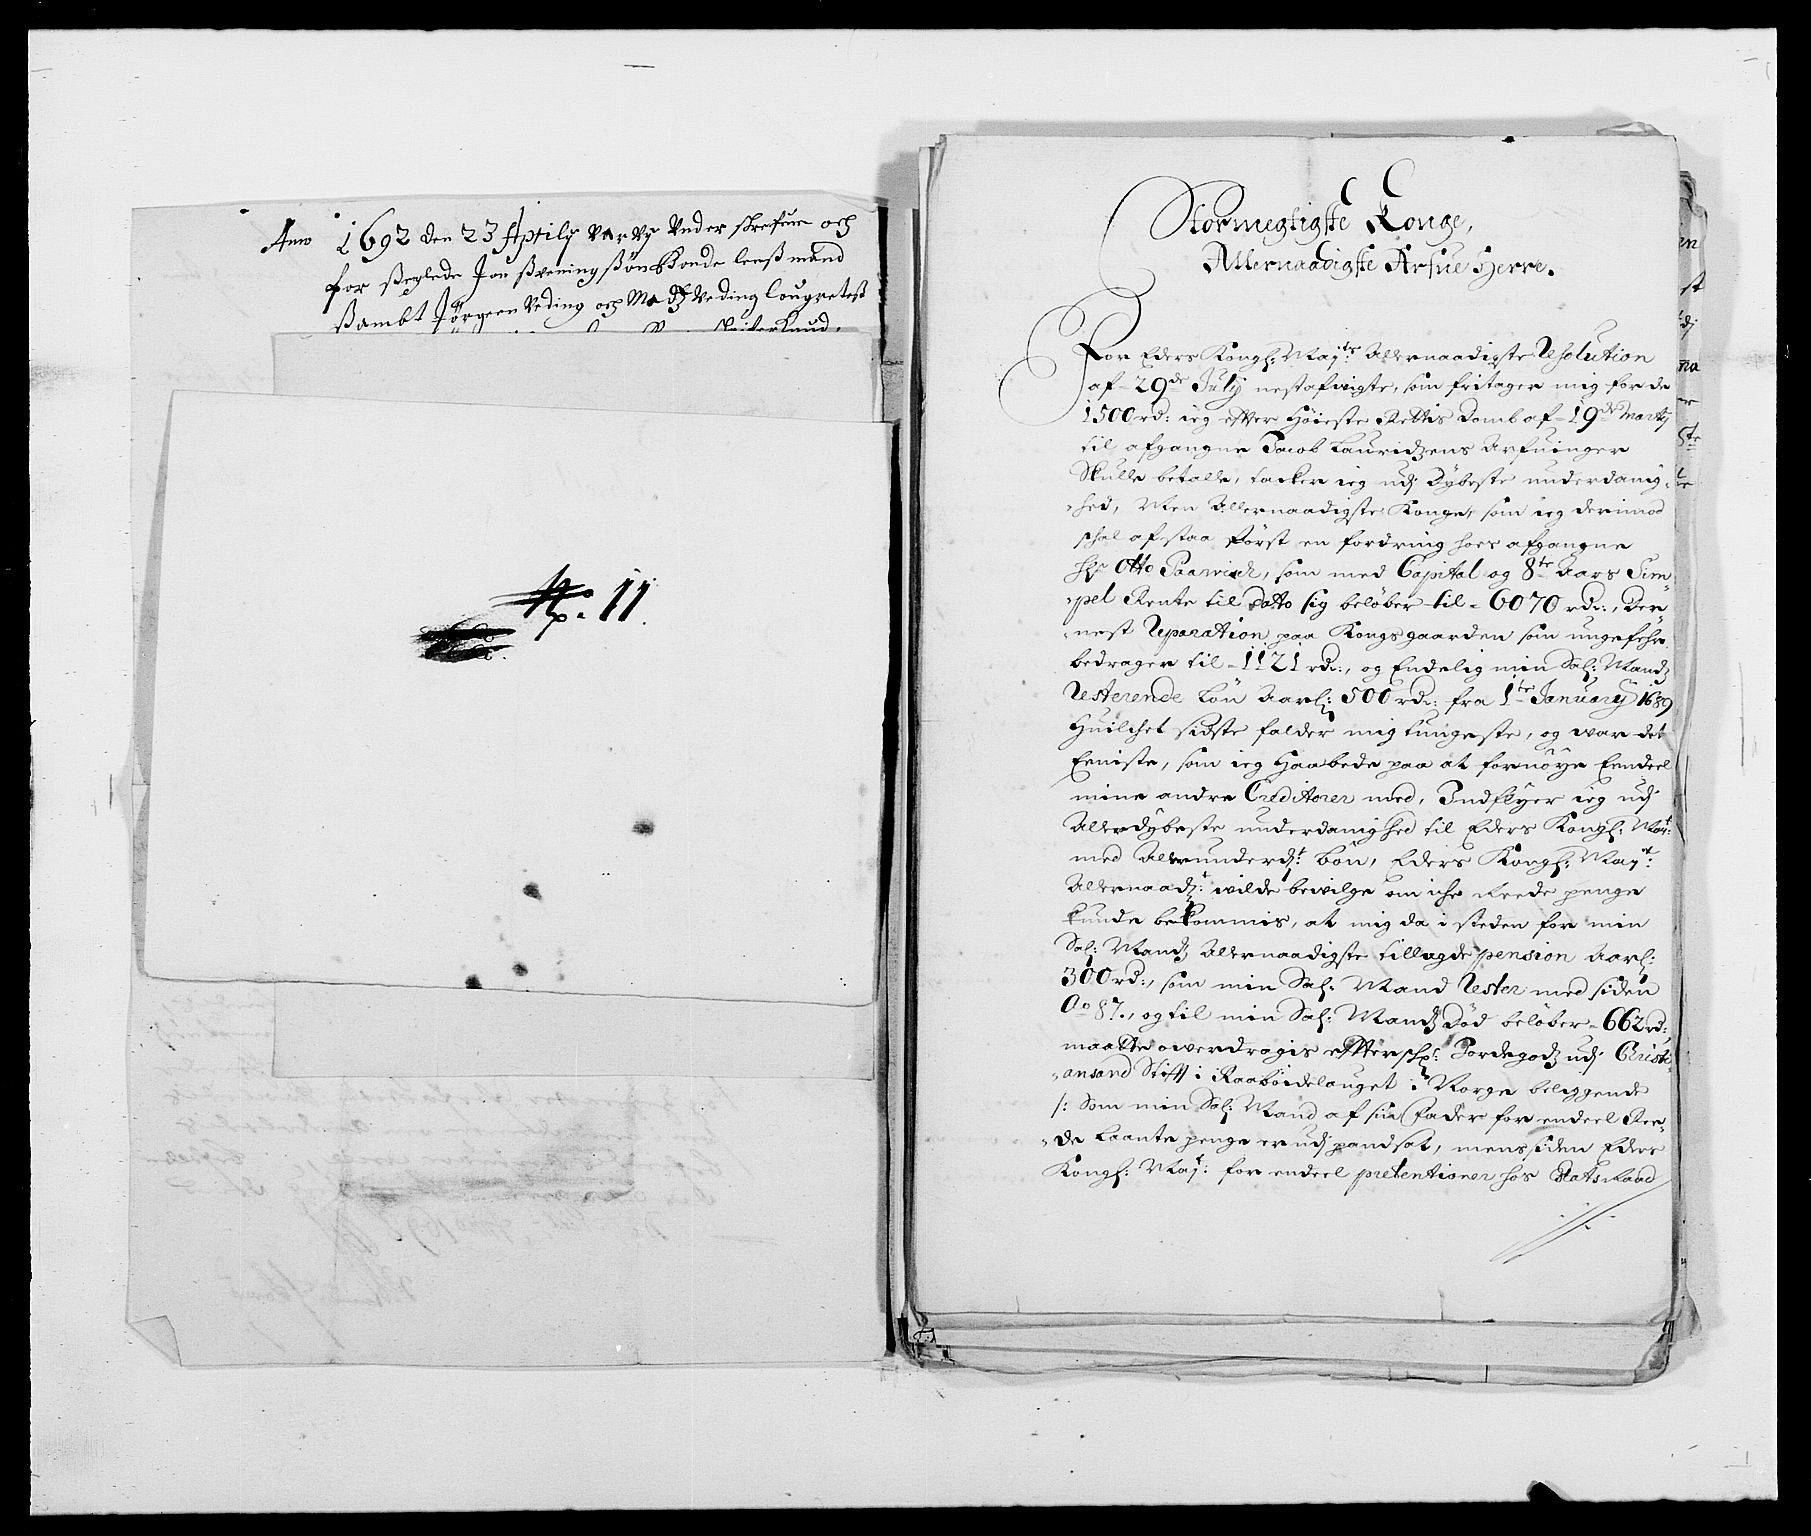 Anno 1692 den 23 Aprily var Vy Under skrefune och
for sseglede Jon ssveningssøn Bonde lenssmand
ssambt Jørgeen Veding och Madtz Veding lougretest
No 11.
Stormegtigste Konge,
Allernaadigste Arfue Herre.
For Eders Kongl: Mayts: Allernaadigste Resolution
af 29de July nestafvigte, som fritager mig for de
1500 rd: ieg efter Høieste Rettis Domb af 19de Marty
til afgangne Jacob Lauridzens Arfuinger
Skulle betalle, tacker ieg udj Dybeste underdanig-
-hed, Men Allernaadigste Konge, som ieg derimod
schal afstaa Først en fordring hoes afgangne
Hr Otto Paarwisch, som med Capital og 8te Aars Sim-
-pel Rente til Datto sig beløber til 6070 rdr:, Der-
-nest Reparation paa Kongsgaarden som ungefehr
bedrager til 1121 rdr:, og Endelig min Sal: Mandz
Resterende Løn Aarl: 500 rdr: fra 1te January 1689
Huilchet sidste falder mig tungeste, og war det
Eeniste, som ieg Haabede paa at fornöye Eendeel
mine andre Creditorer med, Indflyer ieg udj
Allerdybeste underdanighed til Eders Kongl: Mayt:
med Allerunderdt: bön, Eders Kongl: Mayt:
Allernaadt: wilde bewilge om iche Reede penge
kunde bekommis, at mig da i steden for min
Sal: Mandz Allernaadigste tillagde pension Aarl:
300 rd:, som min Sal: Mand Rester med siden
Ao 87., og til min Sal: Mandz Död beløber 662 rd:,
maatte owerdragis effterschr: Jordegodz udj Christi-
-ansand Stifft i Raaböidelauget i Norge beliggende
/: Som min Sal: Mand af sin Fader for endeel Ree-
-de Laante penge er udj pandsat, mens siden Eders
Kongl: Mayt: for endeel pretentioner hos Etats Raad